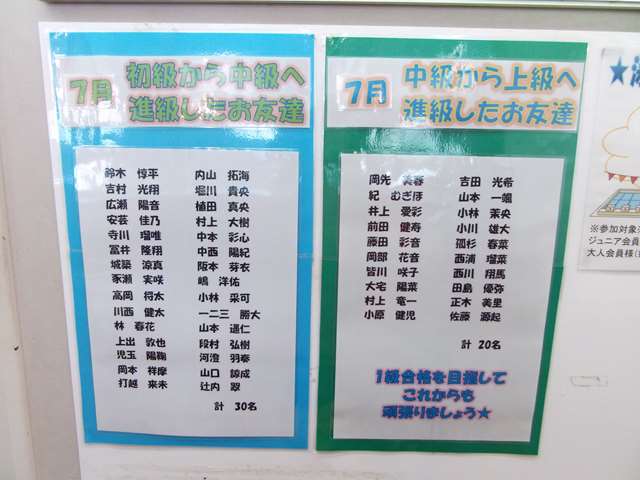 7月
初級から中級へ
進級したお友達
鈴木 惇平
吉村 光翔
広瀬 陽音
安芸 佳乃
寺川 瑠唯
冨井 隆翔
城築 涼真
豕瀬 実咲
高岡 将太
川西 健太
林 春花
上出 敦也
児玉 陽鞠
岡本 祥摩
打越 来未
内山 拓海
堀川 貴央
植田 真央
村上 大樹
中本 彩心
中西 陽紀
阪本 芽衣
嶋 洋佑
小林 采可
一二三 勝大
山本 遥仁
段村 弘樹
河澄 羽奏
山口 諒成
辻内 翠
計 30名
7月
中級から上級へ
進級したお友達
岡先 美春
紀 むぎほ
井上 愛彩
前田 健寿
藤田 彩音
岡部 花音
皆川 咲子
大宅 陽菜
村上 竜一
小原 健児
吉田 光希
山本 一颯
小林 茉央
小川 雄大
孤杉 春菜
西浦 瑠菜
西川 翔馬
田島 優弥
正木 美里
佐藤 源起
計 20名
1級合格を目指して
これからも
頑張りましょう☆
★
※参加対象
ジュニア会員
大人会員様